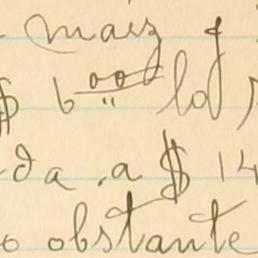 mais
$ 600 lo
da. a $ 14
o obstante